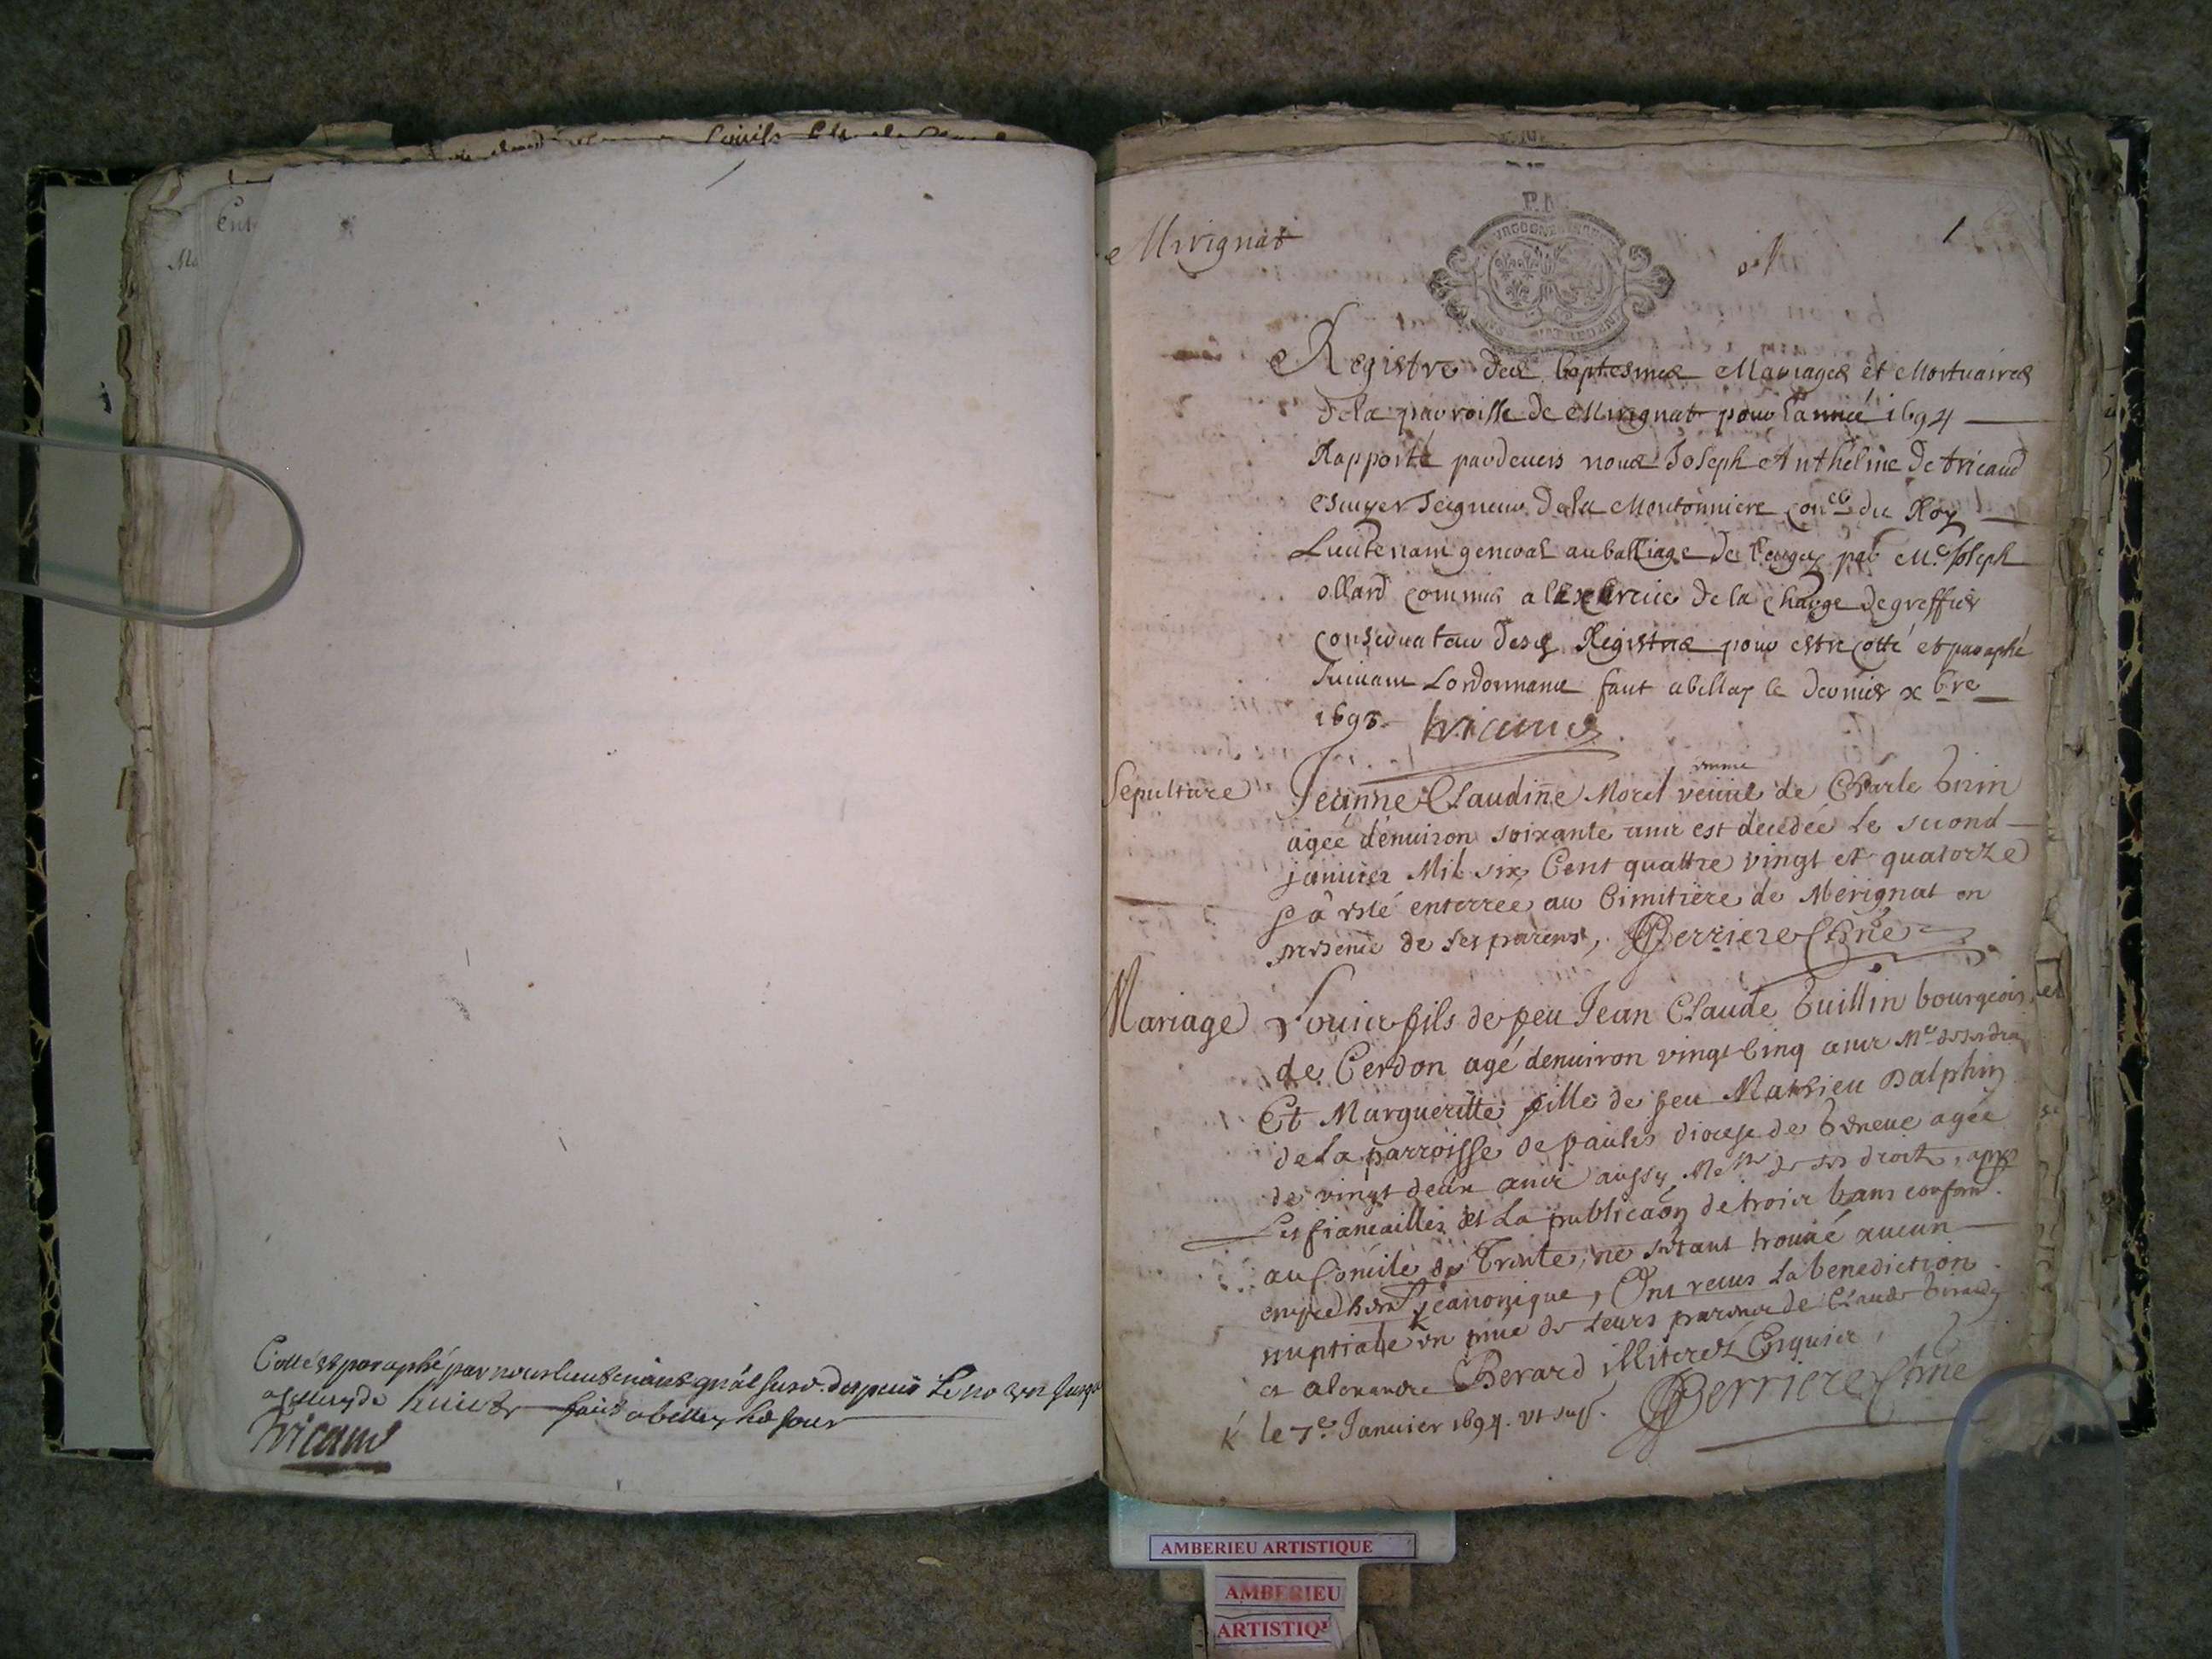 Cotté et paraphé par nous lieutenant gnal susd. depuis Le no un jusqu
a celluy de huict fait a belley led jour
Tricaud
Mirignat
1
Registre des baptesmes Mariages et Mortuaires
de la parroisse de Mirignat pour l'année 1694
Rapporté pardevers nous Joseph Anthelme De tricaud
escuyer seigneur de la Montonniere con.er du Roy
Lieutenant general au balliage de beugey par Me Joseph
ollard commis a l'exercice de la charge de greffier
conservateur desd Registres pour estre cotté et paraphé
suivant Lordonnance fait a belley le dernier xbre
1693 tricaud
Sepulture Jeanne Claudine Morel veuve de Charle
agée d'enuiron soixante ans est decedée le second
januier Mil six Cent quattre vingt et quatorze
et a esté enterrée au Cimitiere de Mérignat en
presence de ses parens, Perriere Curé
Mariage Louis fils de feu Jean Claude Guillin bourgeois
de Cerdon agé denuiron vingt Cinq ans Me de ses droi
Et Margueritte fille de feu Mathieu Dalphin
de la parroisse de diocese de Geneue agée
de vingt deux ans aussy Messe de ses droits, apres
Les fiancailles et La publicaon de trois bans conform.
au Concile de Trente, ne s'estant trouué aucun
empechemt canonique, Ont receus la benediction
nuptiale en pnce de Leurs parens de Claude
et alexandre Berard illiterez Enquis,
le 7e Januier 1694. vt sup. Perriere Curé
AMBERIEU ARTISTIQUE
AMBERIEU
ARTISTIQU